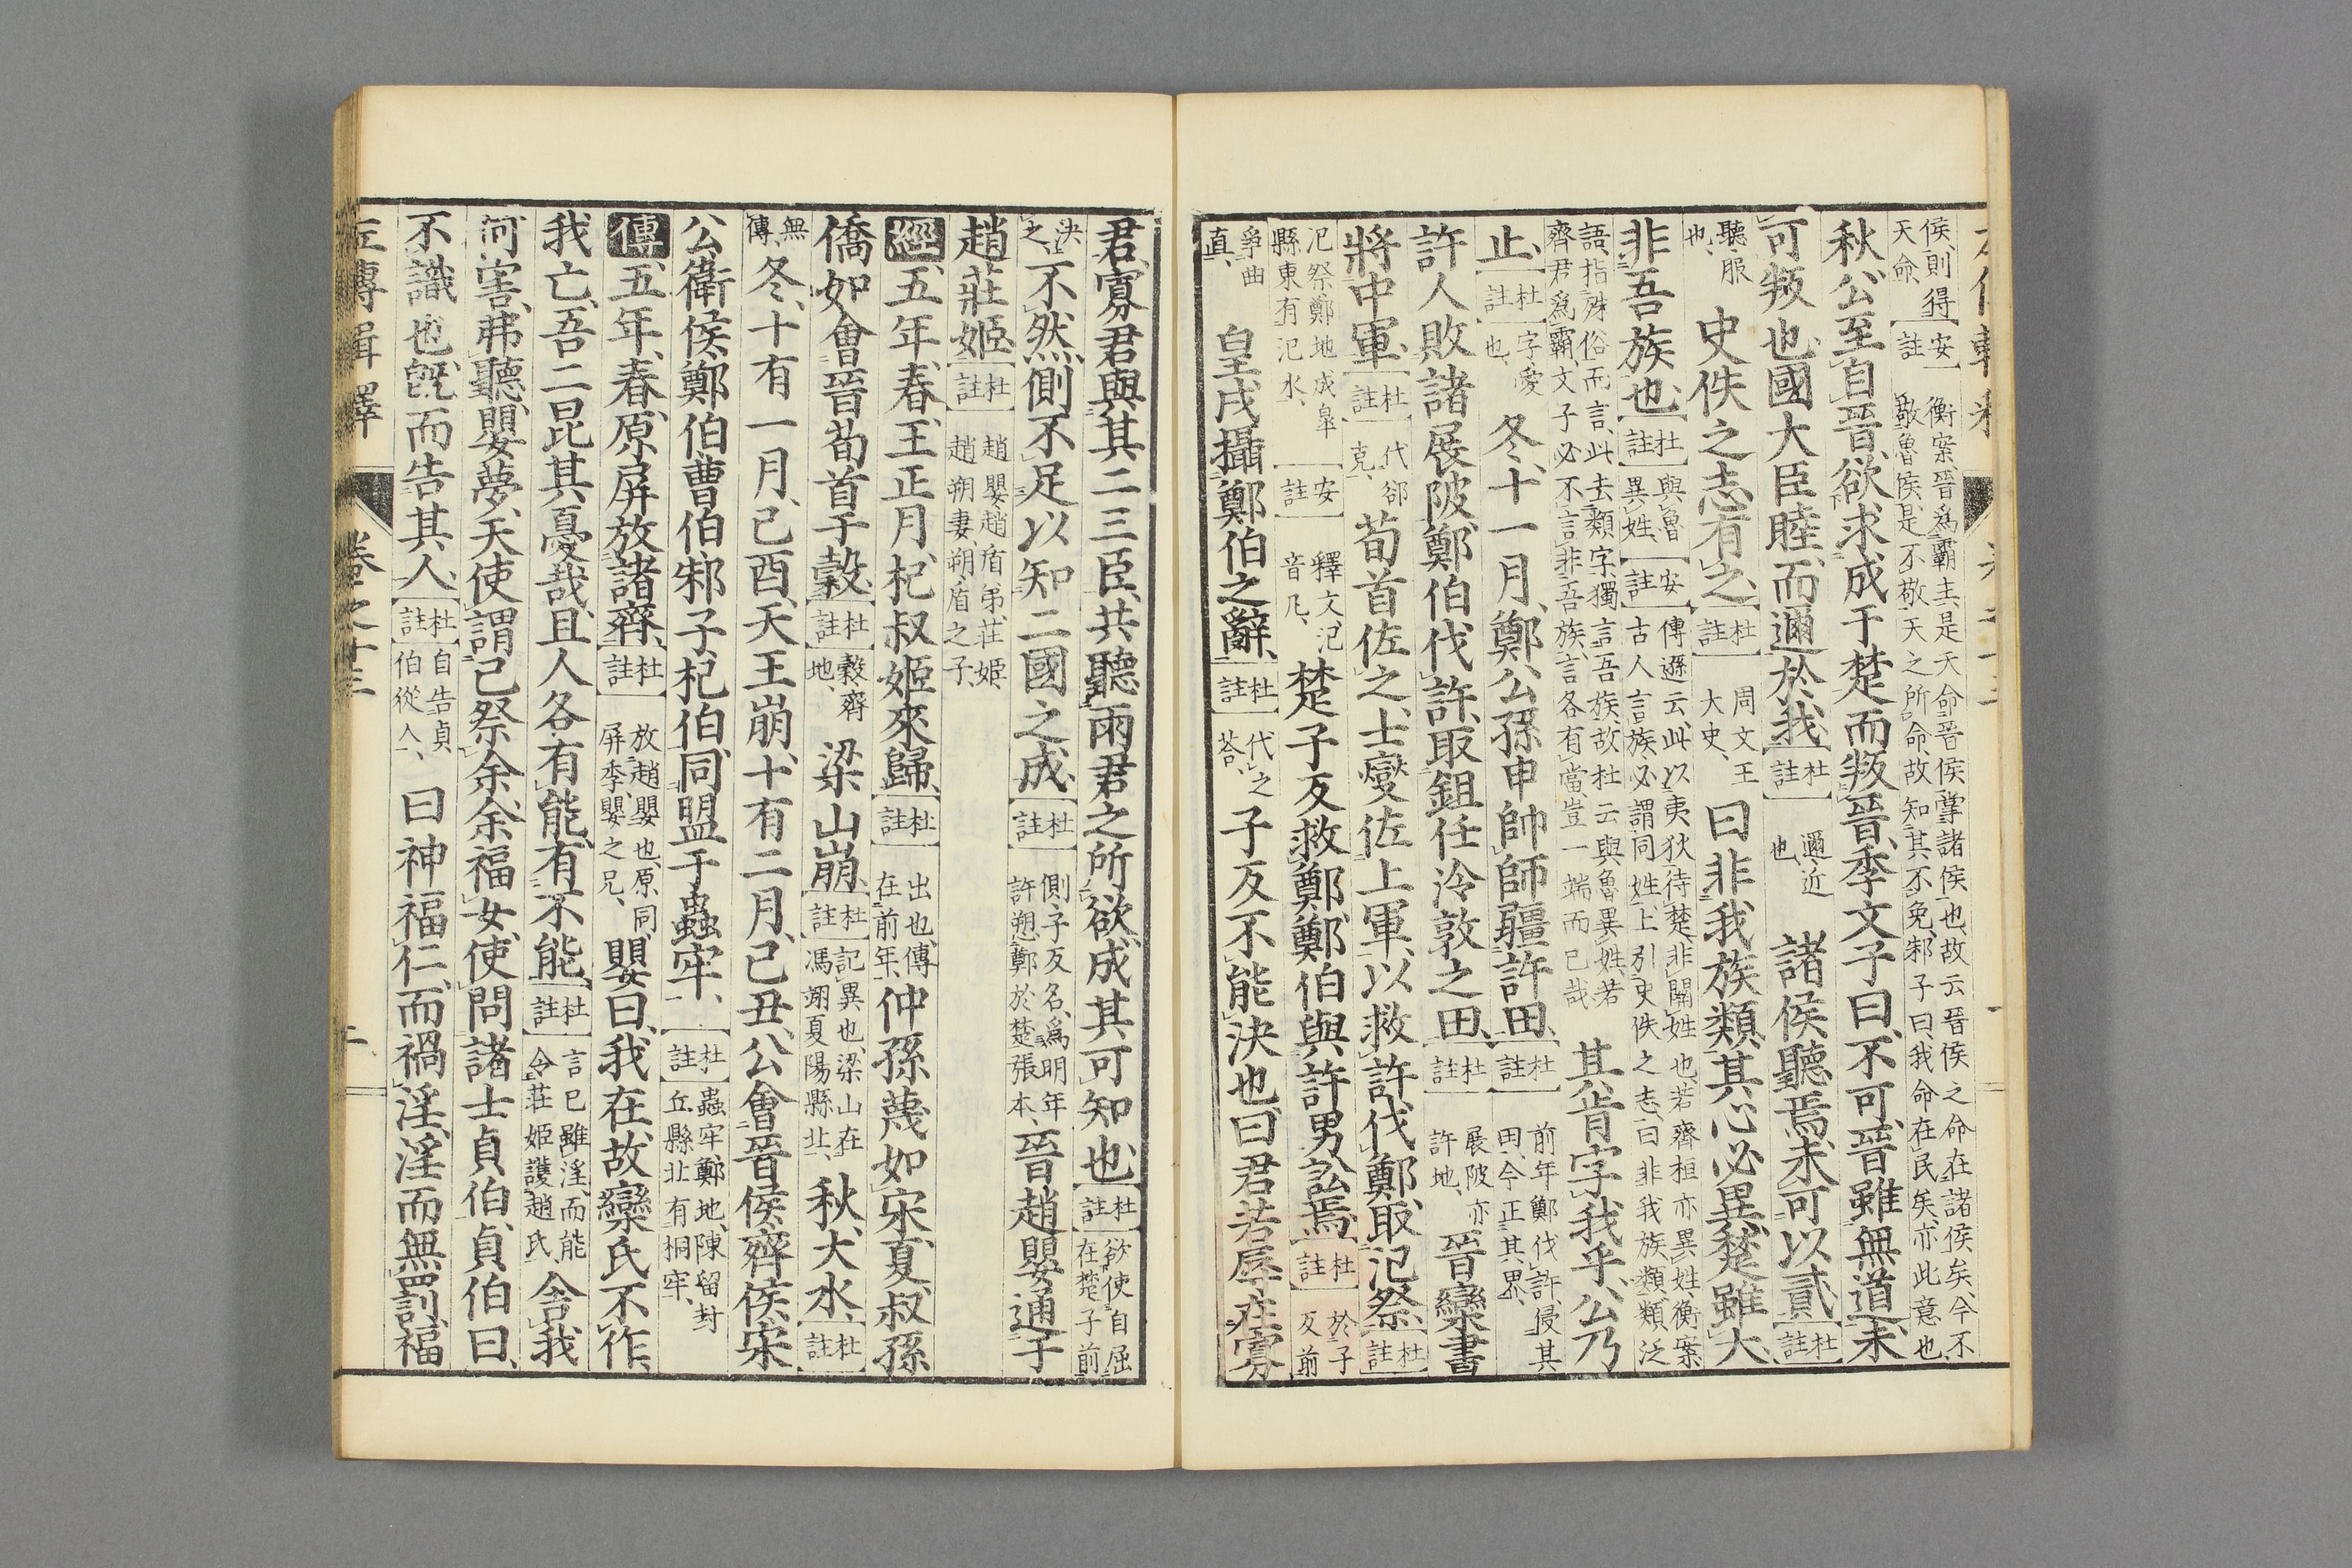 侯則得天命、安註衡案晉爲霸主、是天命晉侯掌諸侯也、故云晉侯之命在諸侯矣、今不敬魯侯、是不敬天之所命、故知其不免、邾子曰我命在民矣、亦此意也、
秋、公至自晉、欲求成于楚而叛晉、季文子曰、不可、晉雖無道、未
可叛也、國大臣睦、而邇於我、杜註邇、近也、諸侯聽焉、未可以貳、杜註
聽、服也、史佚之志有之、杜註周文王大史、曰非我族類、其心必異、楚雖大、
非吾族也、杜註與魯異姓、安註傳遜云、此以夷狄待楚、非關姓也、若齊桓亦異姓、衡案古人言族、必謂同姓、上引史佚之志、曰非我族類、類泛
語、指殊俗而言、此去類字、獨言吾族、故杜云與魯異姓、若齊君爲霸、文子必不言非吾族、言各有當、豈一端而已哉其肯字我乎、公乃
止、杜註字、愛也、冬、十一月、鄭公孫申帥師疆許田、杜註前年鄭伐許、侵其田、今正其界、
許人敗諸展陂、鄭伯伐許、取鉏任泠敦之田、杜註展陂亦許地、晉欒書
將中軍、杜註代郤克、荀首佐之、士燮佐上軍、以救許、伐鄭、取氾祭、杜註
氾祭、鄭地、成皐縣東有氾水、安註釋文、氾音凡、楚子反救鄭、鄭伯與許男訟焉、杜註於子反前
爭曲直、皇戌攝鄭伯之辭、杜註代之荅、子反不能決也、曰君若辱在寡
君、寡君與其二三臣、共聽兩君之所欲、成其可知也、杜註欲使自屈在楚子前
決之、不然、側不足以知二國之成、杜註側、子反名、爲明年許愬鄭於楚張本、晉趙嬰通于
趙莊姬、杜註趙嬰、趙盾弟、莊姬、趙朔妻、朔、盾之子、
經五年、春、王正月、杞叔姬來歸、杜註出也、傳在前年、仲孫蔑如宋、夏、叔孫
僑如會晉荀首于穀、杜註穀、齊地、梁山崩、杜註記異也、梁山在馮翊夏陽縣北、秋、大水、杜註
無傳、冬、十有一月、己酉、天王崩、十有二月、己丑、公會晉侯齊侯宋
公衛侯鄭伯曹伯邾子杞伯、同盟于蟲牢、杜註蟲牢、鄭地、陳留封丘縣北有桐牢、
傳五年、春、原屏放諸齊、杜註放趙嬰也、原同屏季、嬰之兄、嬰曰、我在、故欒氏不作、
我亡、吾二昆其憂哉、且人各有能有不能、杜註言已雖淫、而能令莊姬護趙氏、舍我
何害、弗聽、嬰夢、天使謂己祭余、余福女、使問諸士貞伯、貞伯曰、
不識也、旣而告其人、杜註自告貞伯從人、曰神福仁而禍淫、淫而無罰、福
左傳輯釋 卷之十三